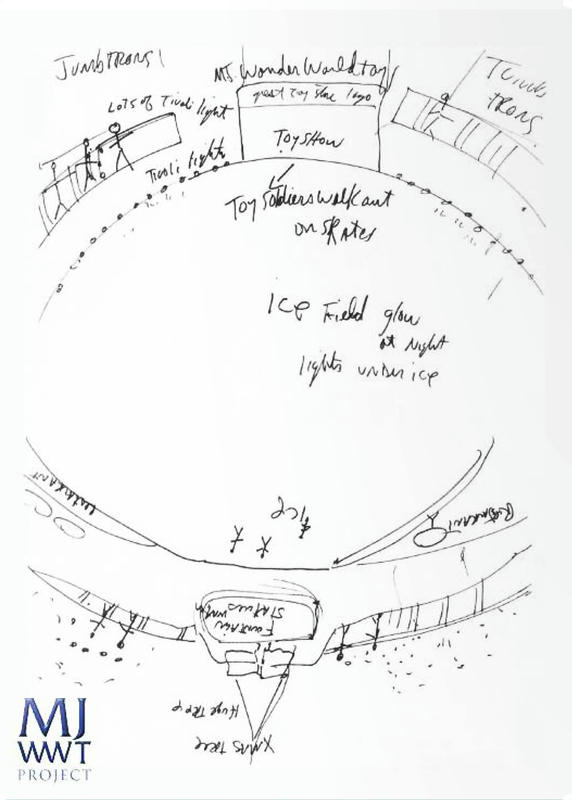 JUMBTRONS!
MJ. Wonder World toys
great toy store logo
TOYSHOW
LOTS of Tivoli light
Tivoli lights
TRONS
Toy Soldiers walk out
on skates
ICE Field glow
at Night
lights under ice
ICE
Restaurant
Restaurant
Fountain
Statues with
Huge TREE
XMAS TREE
MJ
WWT
PROJECT